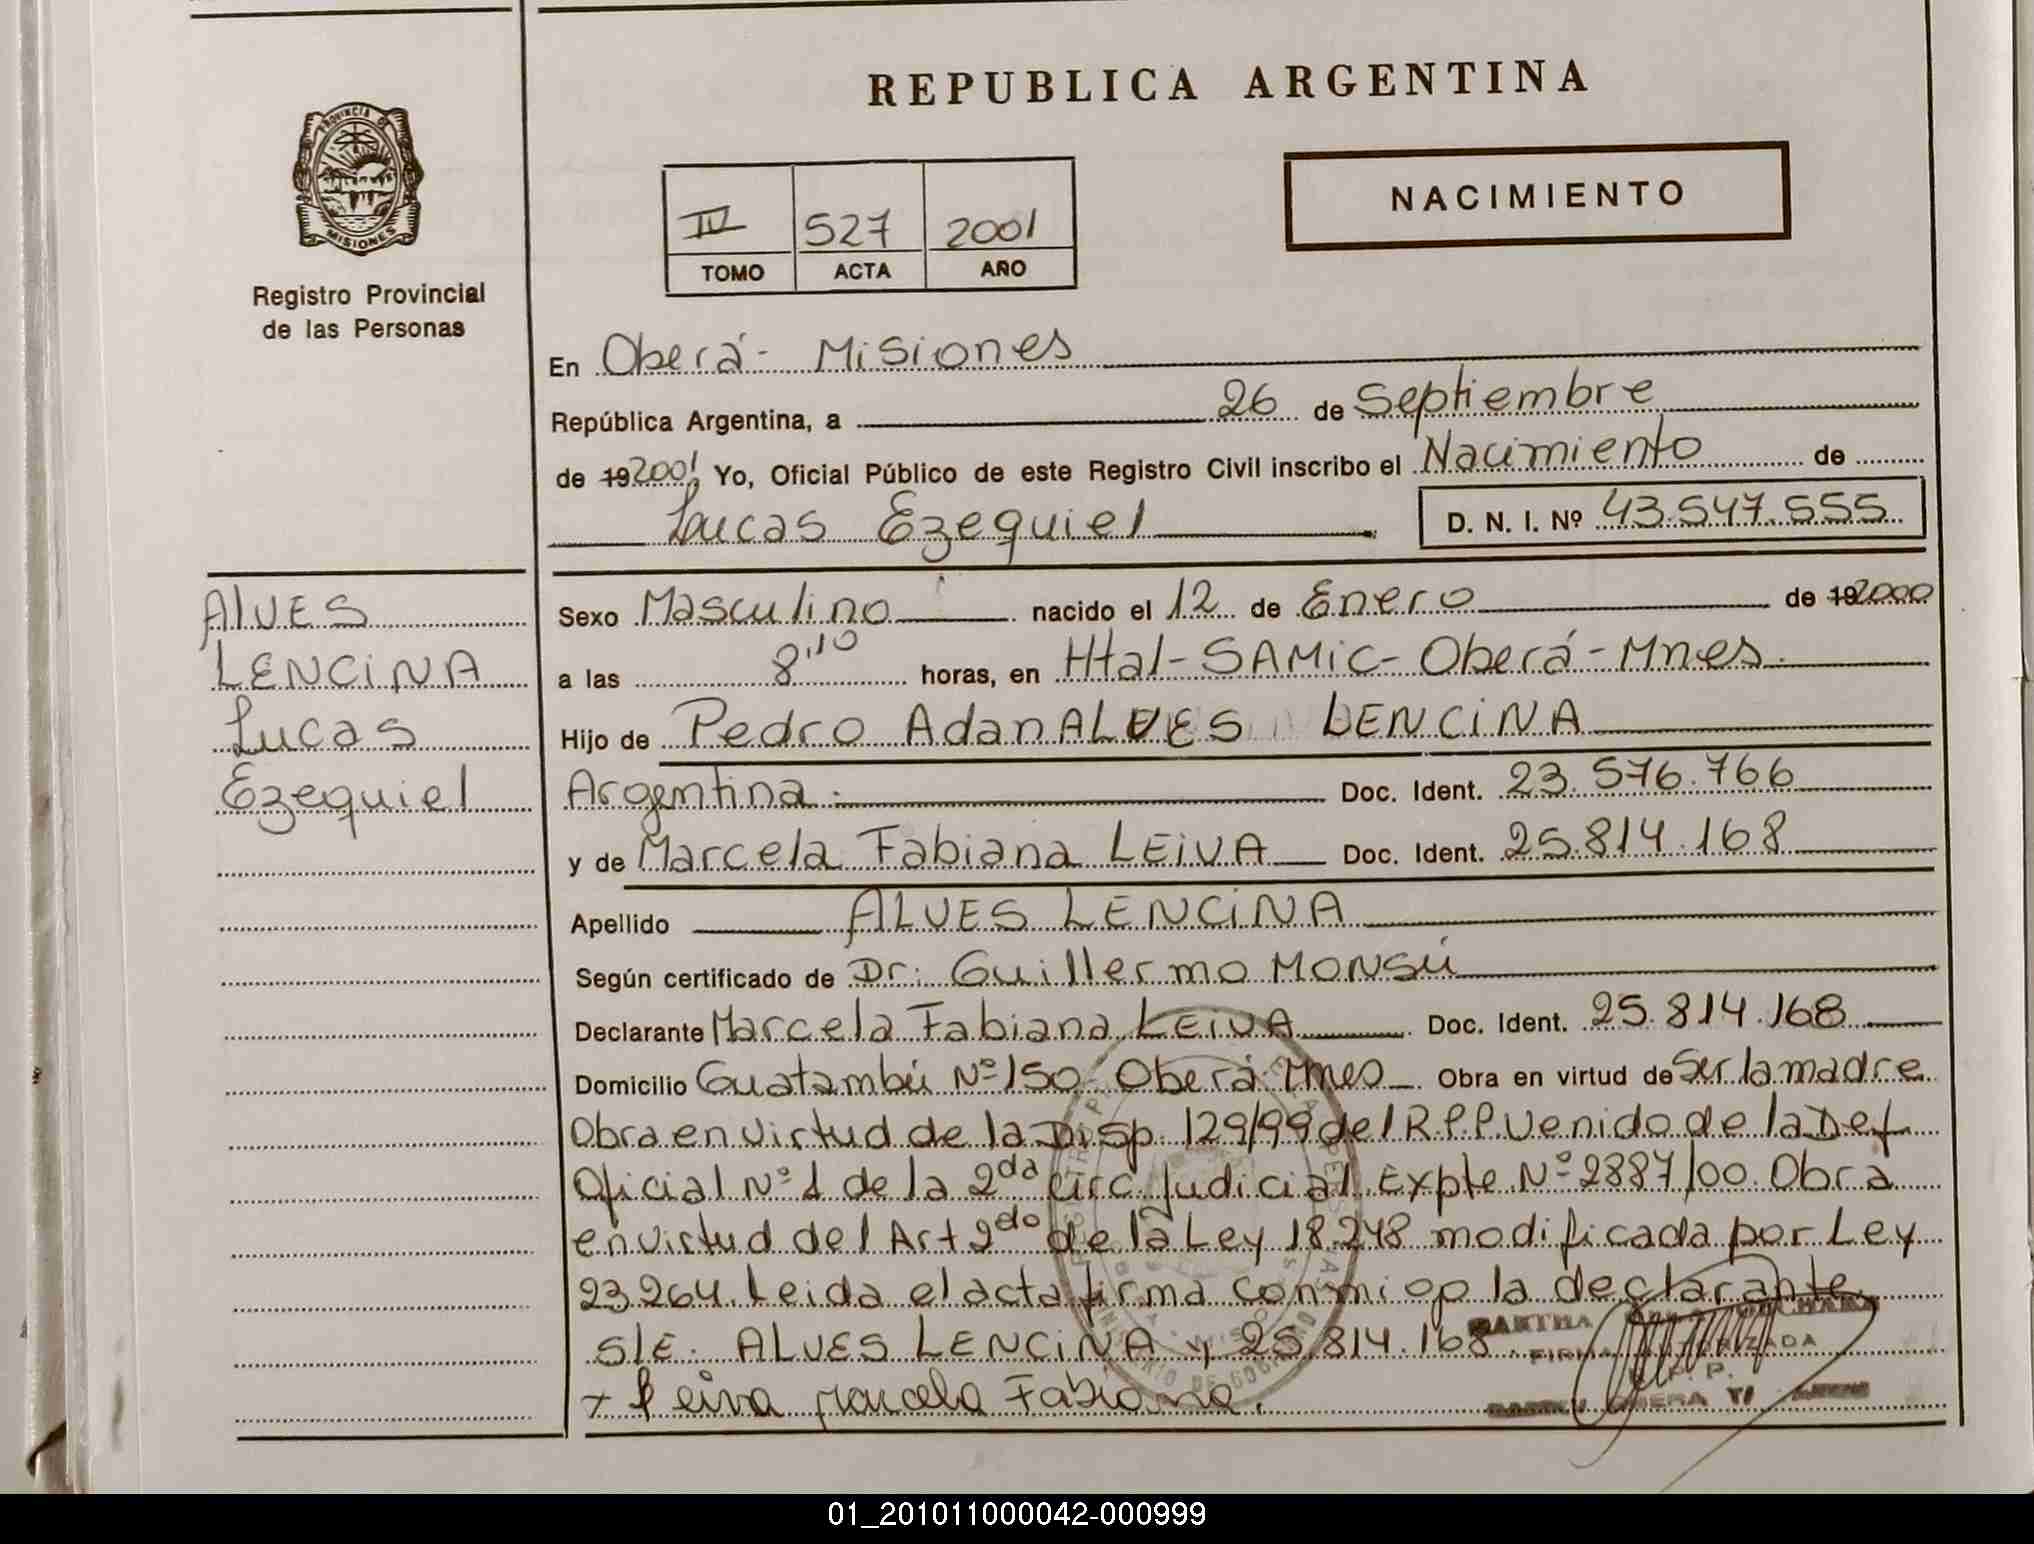 REPUBLICA ARGENTINA
PROVINCIA DE
MISIONES
Registro Provincial
de las Personas
IV 527 2001
TOMO ACTA AÑO
NACIMIENTO
En Oberá - Misiones
República Argentina, a 26 de Septiembre
de 192001, Yo, Oficial Público de este Registro Civil inscribo el Nacimiento de
Lucas Ezequiel
D. N. I. Nº 43.547.555
ALVES
LENCINA
Lucas
Ezequiel
Sexo Masculino nacido el 12 de Enero de 192000
a las 8,10 horas, en Htal-SAMic-Oberá-Mnes.
Hijo de Pedro Adan ALVES LENCINA
Argentina. Doc. Ident. 23.576.766
y de Marcela Fabiana LEIVA Doc. Ident. 25.814.168
Apellido ALVES LENCINA
Según certificado de Dr. Guillermo MONSÚ
Declarante Marcela Fabiana LEIVA Doc. Ident. 25.814.168
Domicilio Guatambú Nº 150 Oberá Mnes Obra en virtud de Ser la madre
Obra en virtud de la Disp. 129/99 del R.P.P. Venido de la Def
Oficial Nº 1 de la 2da Circ. Judicial Expte Nº 2887/00. Obra
en virtud del Art 2do de la Ley 18.248 modificada por Ley
23264. Leida el acta firma conmigo la declarante
S/E. ALVES LENCINA y 25.814.168
+ Leiva Marcela Fabiana.
MARTHA
FIRMA AUTORIZADA
R. P. P.
OBERA
01_201011000042-000999